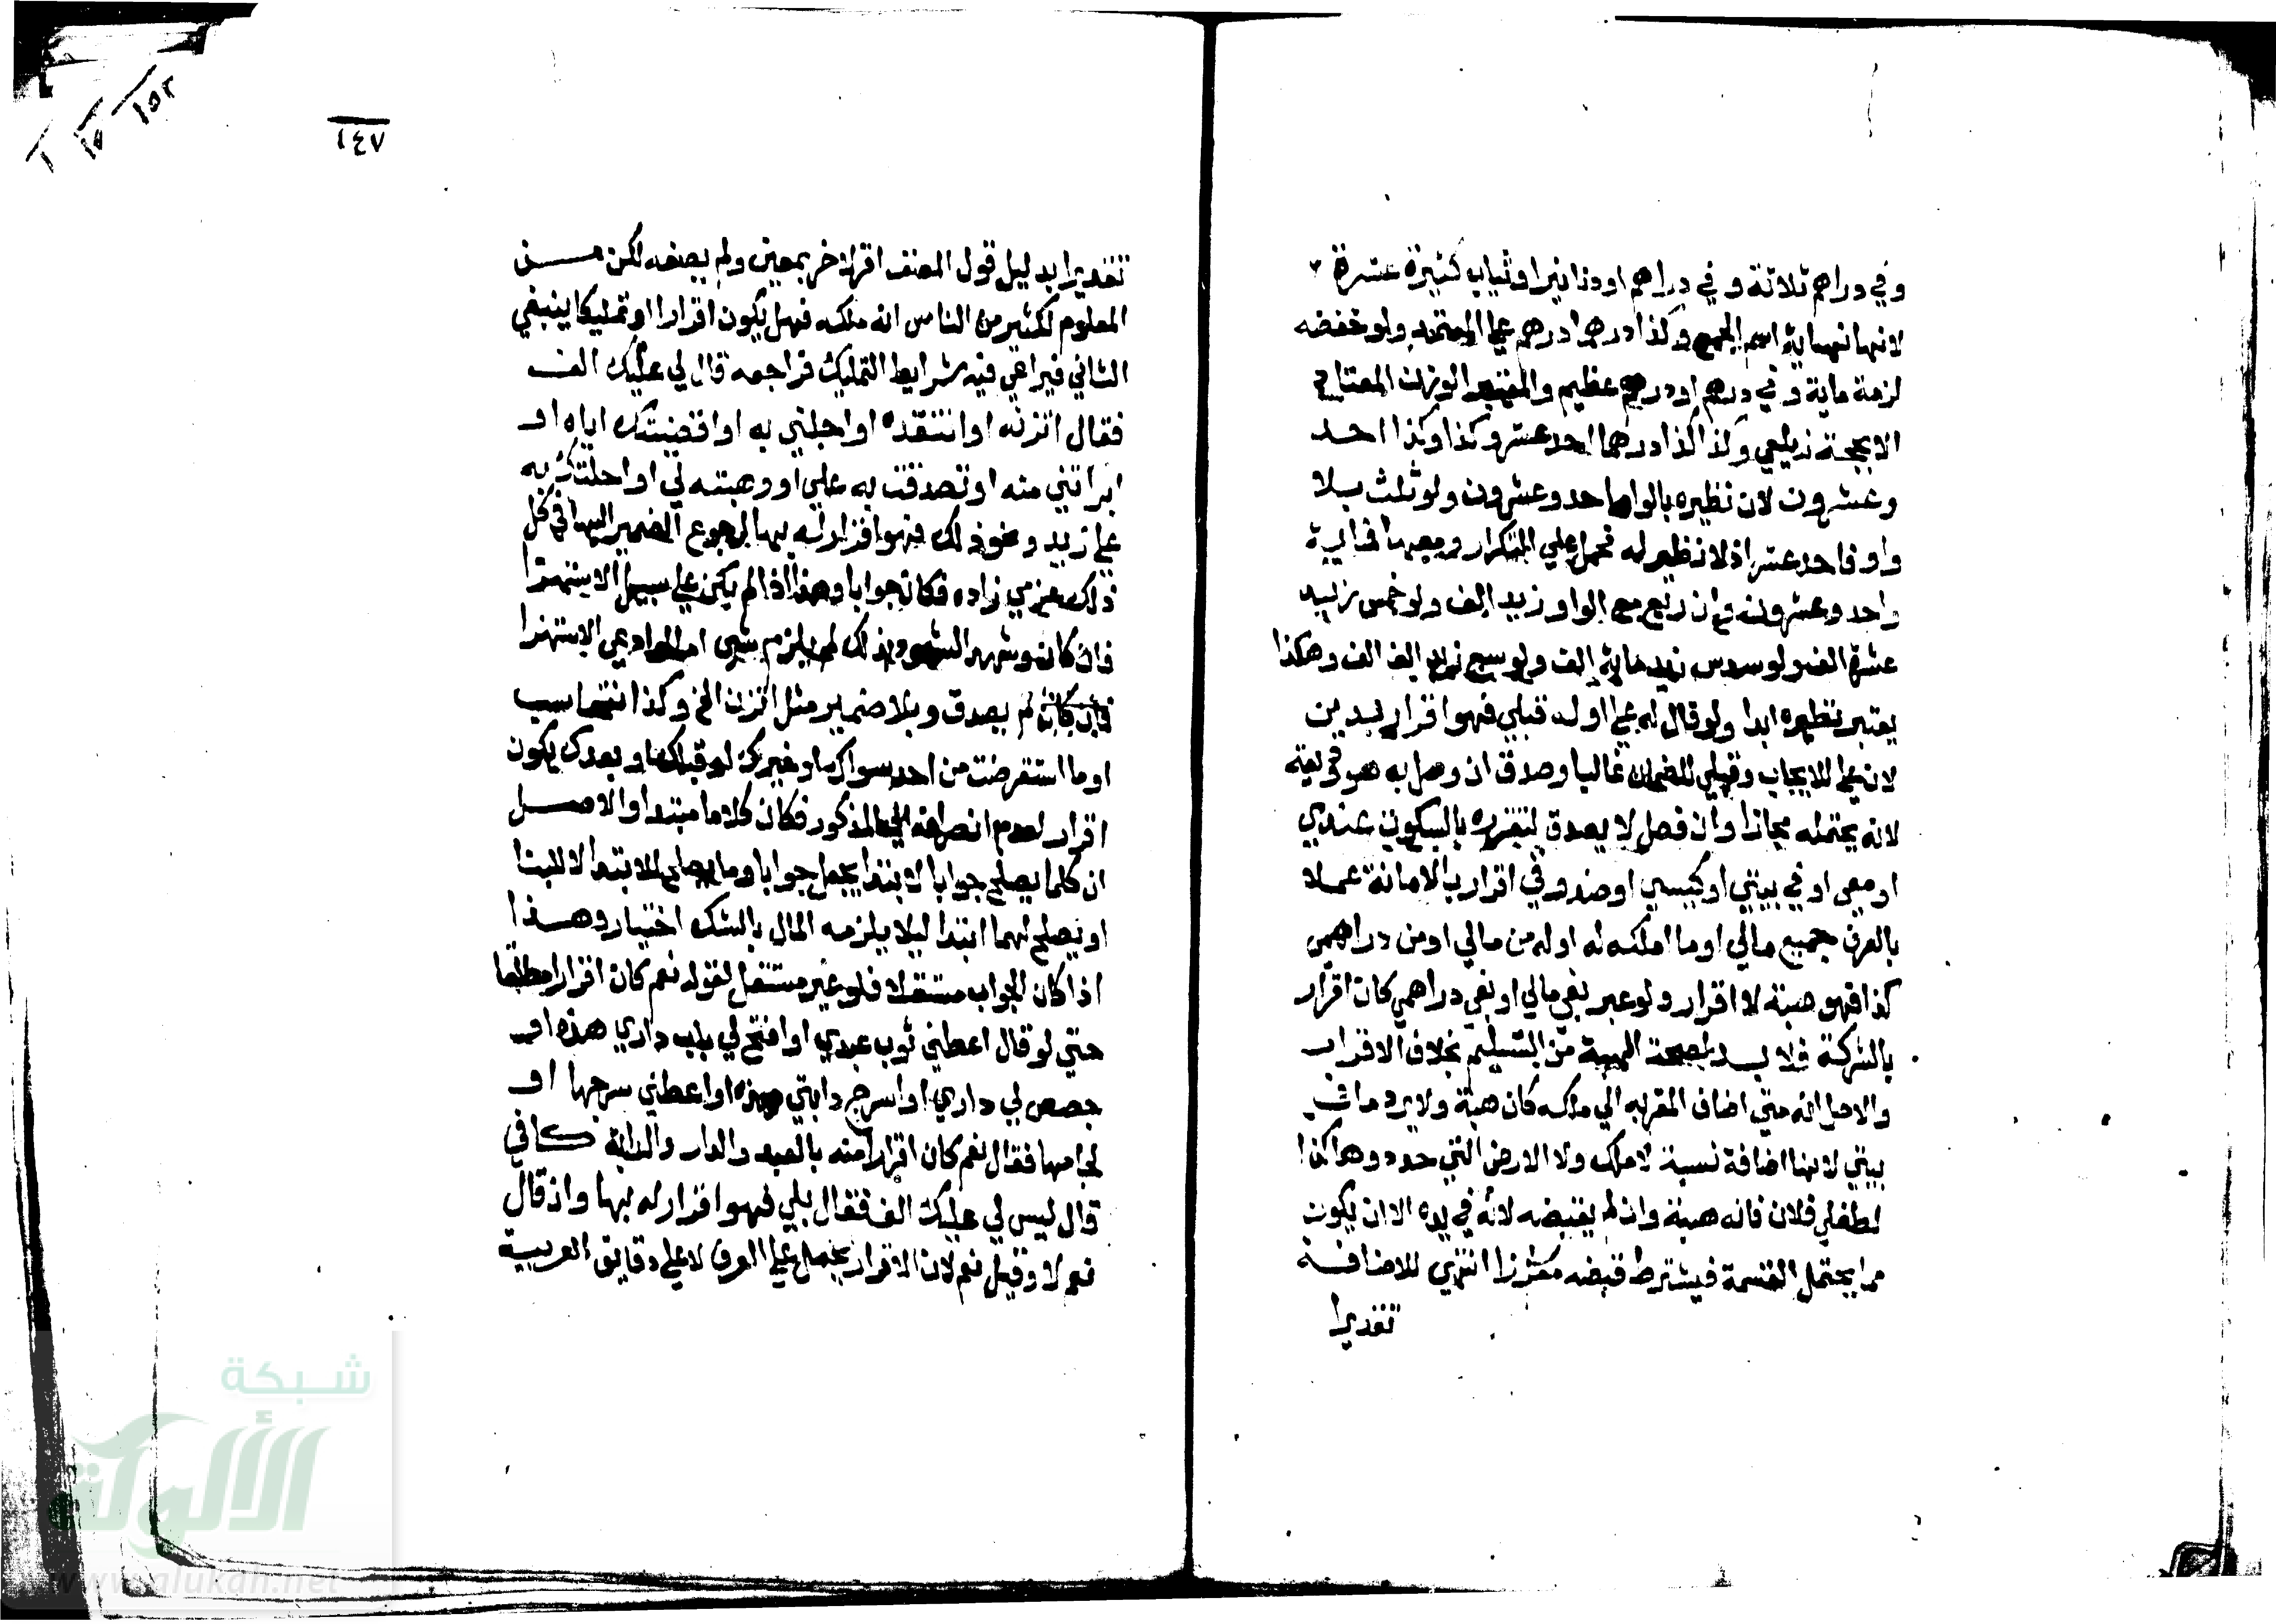 وفي دراهم ثلاثة وفي دراهم او دنانير او ثياب كثيرة عشرة
لانها نهاية اسم الجمع وكذا درهما درهم علي المعتمد ولو خفضه
لزمة ماية وفي درهم او درهم عظيم والمعتبر الوزن المعتاد
الا بحجة زيلعي وكذا كذا درهما احد عشر وكذا وكذا احد
وعشرون لان نظيره بالواو احد وعشرون ولو ثلث بلا
واو فاحد عشر اذ لا نظير له فحمل علي التكرار ومعها فماية
واحد وعشرون وان ربع مع الواو زيد الف ولو خمس زيد
عشرة الف ولو سدس زيد ماية الف ولو سبع زيد الف الف وهكذا
يعتبر نظيره ابدا ولو قال له علي او له قبلي فهو اقرار بدين
لان علي للايجاب وقبلي للضمان غالبا وصدق ان وصل به هو وديعة
لانه يحتمله مجازا وان فصل لا يصدق لتقرره بالسكوت عندي
او معي او في بيتي او كيسي او صندوقي اقرار بالامانة عملا
بالعرف جميع مالي او ما املكه له او له من مالي او من دراهمي
كذا فهو هبة لا اقرار ولو عبر بفي مالي او بفي دراهمي كان اقرار
بالشركة فلا بد لصحة الهبة من التسليم بخلاف الاقرار
والاصل انه متي اضاف المقر به الي ملكه كان هبة ولا يرد ما في
بيتي لانها اضافة نسبة لا ملك ولا الارض التي حدودها كذا
لطفلي فلان فانه هبة وان لم يقبضه لانه في يده الا ان يكون
مما يحتمل القسمة فيشترط قبضه مفرزا انتهي للاضافة
تقديرا
١٤٧
تقديرا بدليل قول المصنف اقر لاخر بمعين ولم يصفه لكن مـن
المعلوم لكثير من الناس انه ملكه فهل يكون اقرارا او تمليكا ينبغي
الثاني فيراعي فيه شرايط التمليك فراجعه قال لي عليك الف
فقال اتزنه او انتقده او اجلني به او اقضيتك اياه او
ابراتني منه او تصدقت به علي او وهبته لي او احلتك به
علي زيد ونحو ذلك فهو اقرار له بها لرجوع الضمير اليها في كل
ذلك عزمي زاده فكان جوابا وهذا اذا لم يكن علي سبيل الاستهزا
فان كان وشهد الشهود بذلك لم يلزم شي اما لو ادعي الاستهزا
لم يصدق وبلا ضمير مثل اتزن الخ وكذا نتحاسب
او ما استقرضت من احد سواك او غيرك او قبلك او بعدك يكون
اقرار لعدم انصرافه الي المذكور فكان كلاما مبتدا والاصل
ان كلما يصلح جوابا لا ابتدا يجعل جوابا وما يصلح للابتدا لا للبنا
او يصلح لهما ابتدا ليلا يلزمه المال بالشك اختيار وهذا
اذا كان الجواب مستقلا فلو غير مستقل لقوله نعم كان اقرارا مطلقا
حتي لو قال اعطني ثوب عبدي او افتح لي باب داري هذه او
جصص لي داري او اسرج دابتي هذه او اعطني سرجها او
لجامها فقال نعم كان اقرارا منه بالعبد والدار والدابة كافي
قال ليس لي عليك الف فقال بلي فهو اقرار له بها وان قال
نعم لا وقيل نعم لان الاقرار يحمل علي العرف لا علي دقايق العربية
شبكة
الألوكة
www.alukah.net